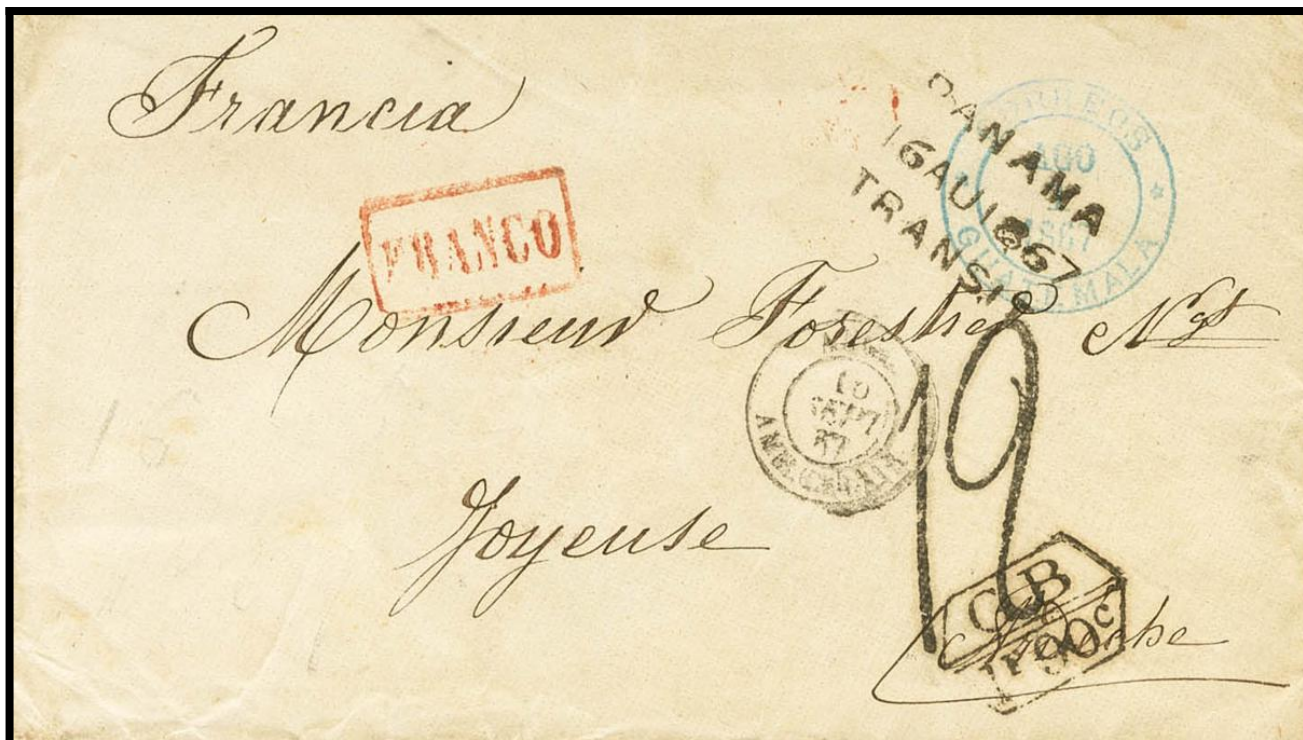 Francia
PANAMA
16 AU 1867
TRANSIT
CORREOS
AGO
1867
GUATEMALA
FRANCO
Monsieur Forestier Ngt
10
SEPT
67
ANGL.
CALAIS
Joyeuse
12
GB
1F90c
Ardèche